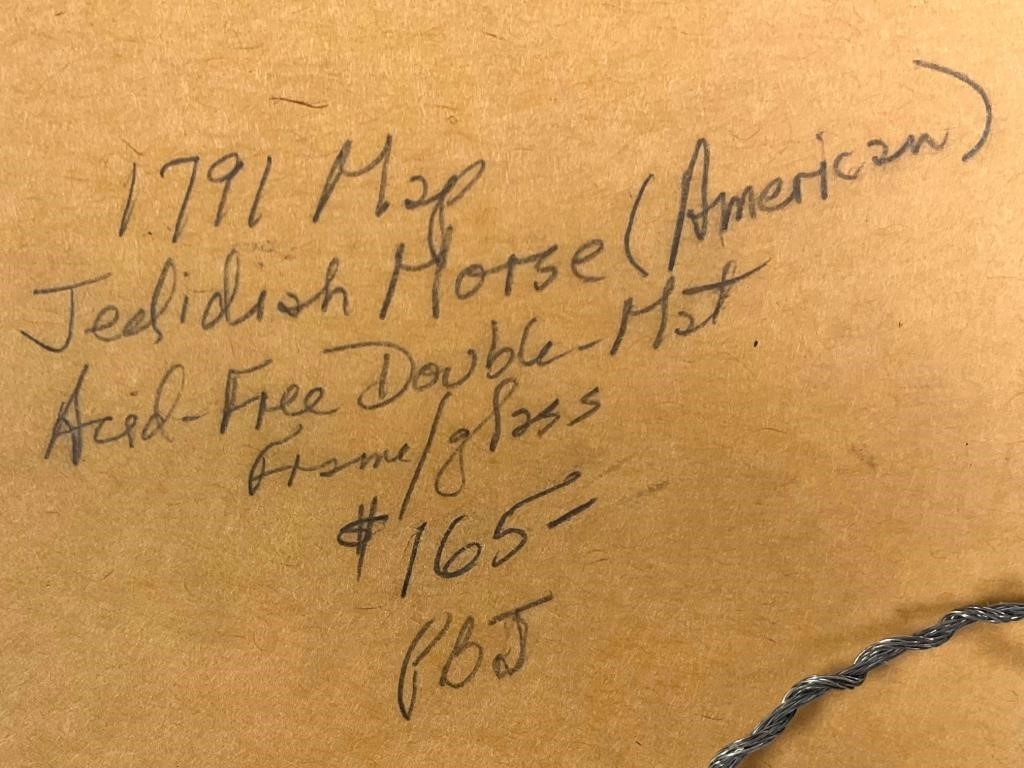 1791 Map
Jedidiah Morse (American)
Acid-Free Double-Mat
Frame/glass
$165-
PBJ